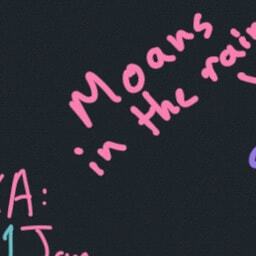 Moans
in the rain
A:
1J